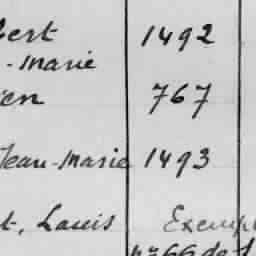 bert 1492
-Marie
en 767
Jean-Marie 1493
t, Louis Exemp
n° 66 de